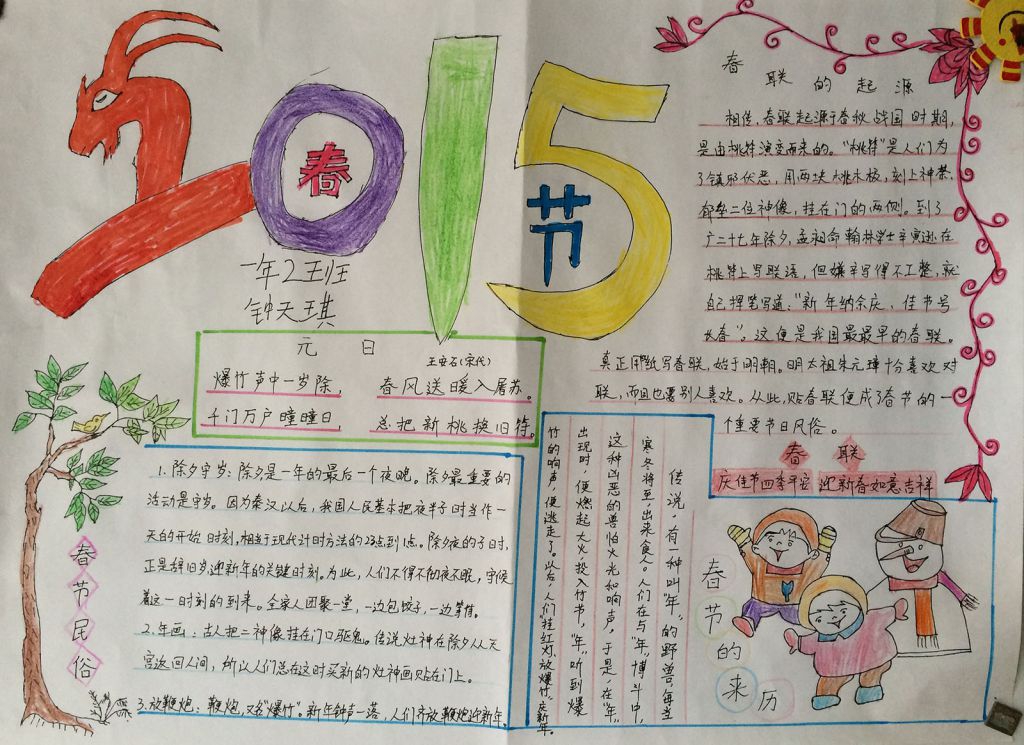 2015
春
节
一年2班
钟天琪
元 日
王安石(宋代)
爆竹声中一岁除, 春风送暖入屠苏。
千门万户曈曈日, 总把新桃换旧符。
春联的起源
相传,春联起源于春秋战国时期,
是由桃符演变而来的。“桃符”是人们为
了镇邪伏恶,用两块桃木板,刻上神荼、
郁垒二位神像,挂在门的两侧。到了
广二十七年除夕,孟昶命翰林学士辛寅逊在
桃符上写联语,但嫌辛写得不工整,就
自己提笔写道:“新年纳余庆,佳节号
长春”。这便是我国最最早的春联。
真正用纸写春联,始于明朝。明太祖朱元璋十分喜欢对
联,而且也要别人喜欢。从此,贴春联便成了春节的一
个重要节日风俗。
春联
庆佳节四季平安 迎新春如意吉祥
春节民俗
1.除夕守岁:除夕,是一年的最后一个夜晚。除夕最重要的
活动是守岁。因为秦汉以后,我国人民基本把夜半子时当作一
天的开始时刻,相当于现代计时方法的23点到1点。除夕夜的子时,
正是辞旧岁迎新年的关键时刻。为此,人们不得不彻夜不眠,守候
着这一时刻的到来。全家人团聚一堂,一边包饺子,一边等待。
2.年画:古人把二神像挂在门口驱鬼。传说灶神在除夕从天
宫返回人间,所以人们总在这时买新的灶神画贴在门上。
3.放鞭炮:鞭炮,又名“爆竹”。新年钟声一落,人们齐放鞭炮迎新年。
传说:有一种叫“年”的野兽,每当
寒冬将至,出来食人。人们在与“年”博斗中,
这种凶恶的兽怕火光和响声,于是,在“年”
出现时,便燃起大火投入竹节,“年”听到爆
竹的响声,便逃走了。以后,人们“挂红灯,放爆竹”庆新年。
春节的来历